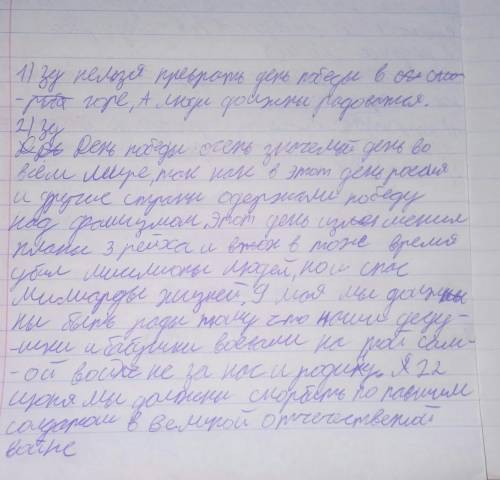 1) Зу нельзя преврать день победы в
горе, А люди должны радоваться.
2) Зу
День победы очень значемый день во
всем мире, так как в этот день россия
и другие страны одержали победу
над фашизмом, Этот день изменил
планы 3 рейха и в тоже время
убил миллионы людей, но и спас
милиарды жизней, 9 мая мы долж
ны быть рады тому что наши деду-
-шки и бабушки воевали на той сам-
-ой войне за нас и родину. А 22
июня мы должны скорбить по павшим
солдатам в великой отечественой
войне